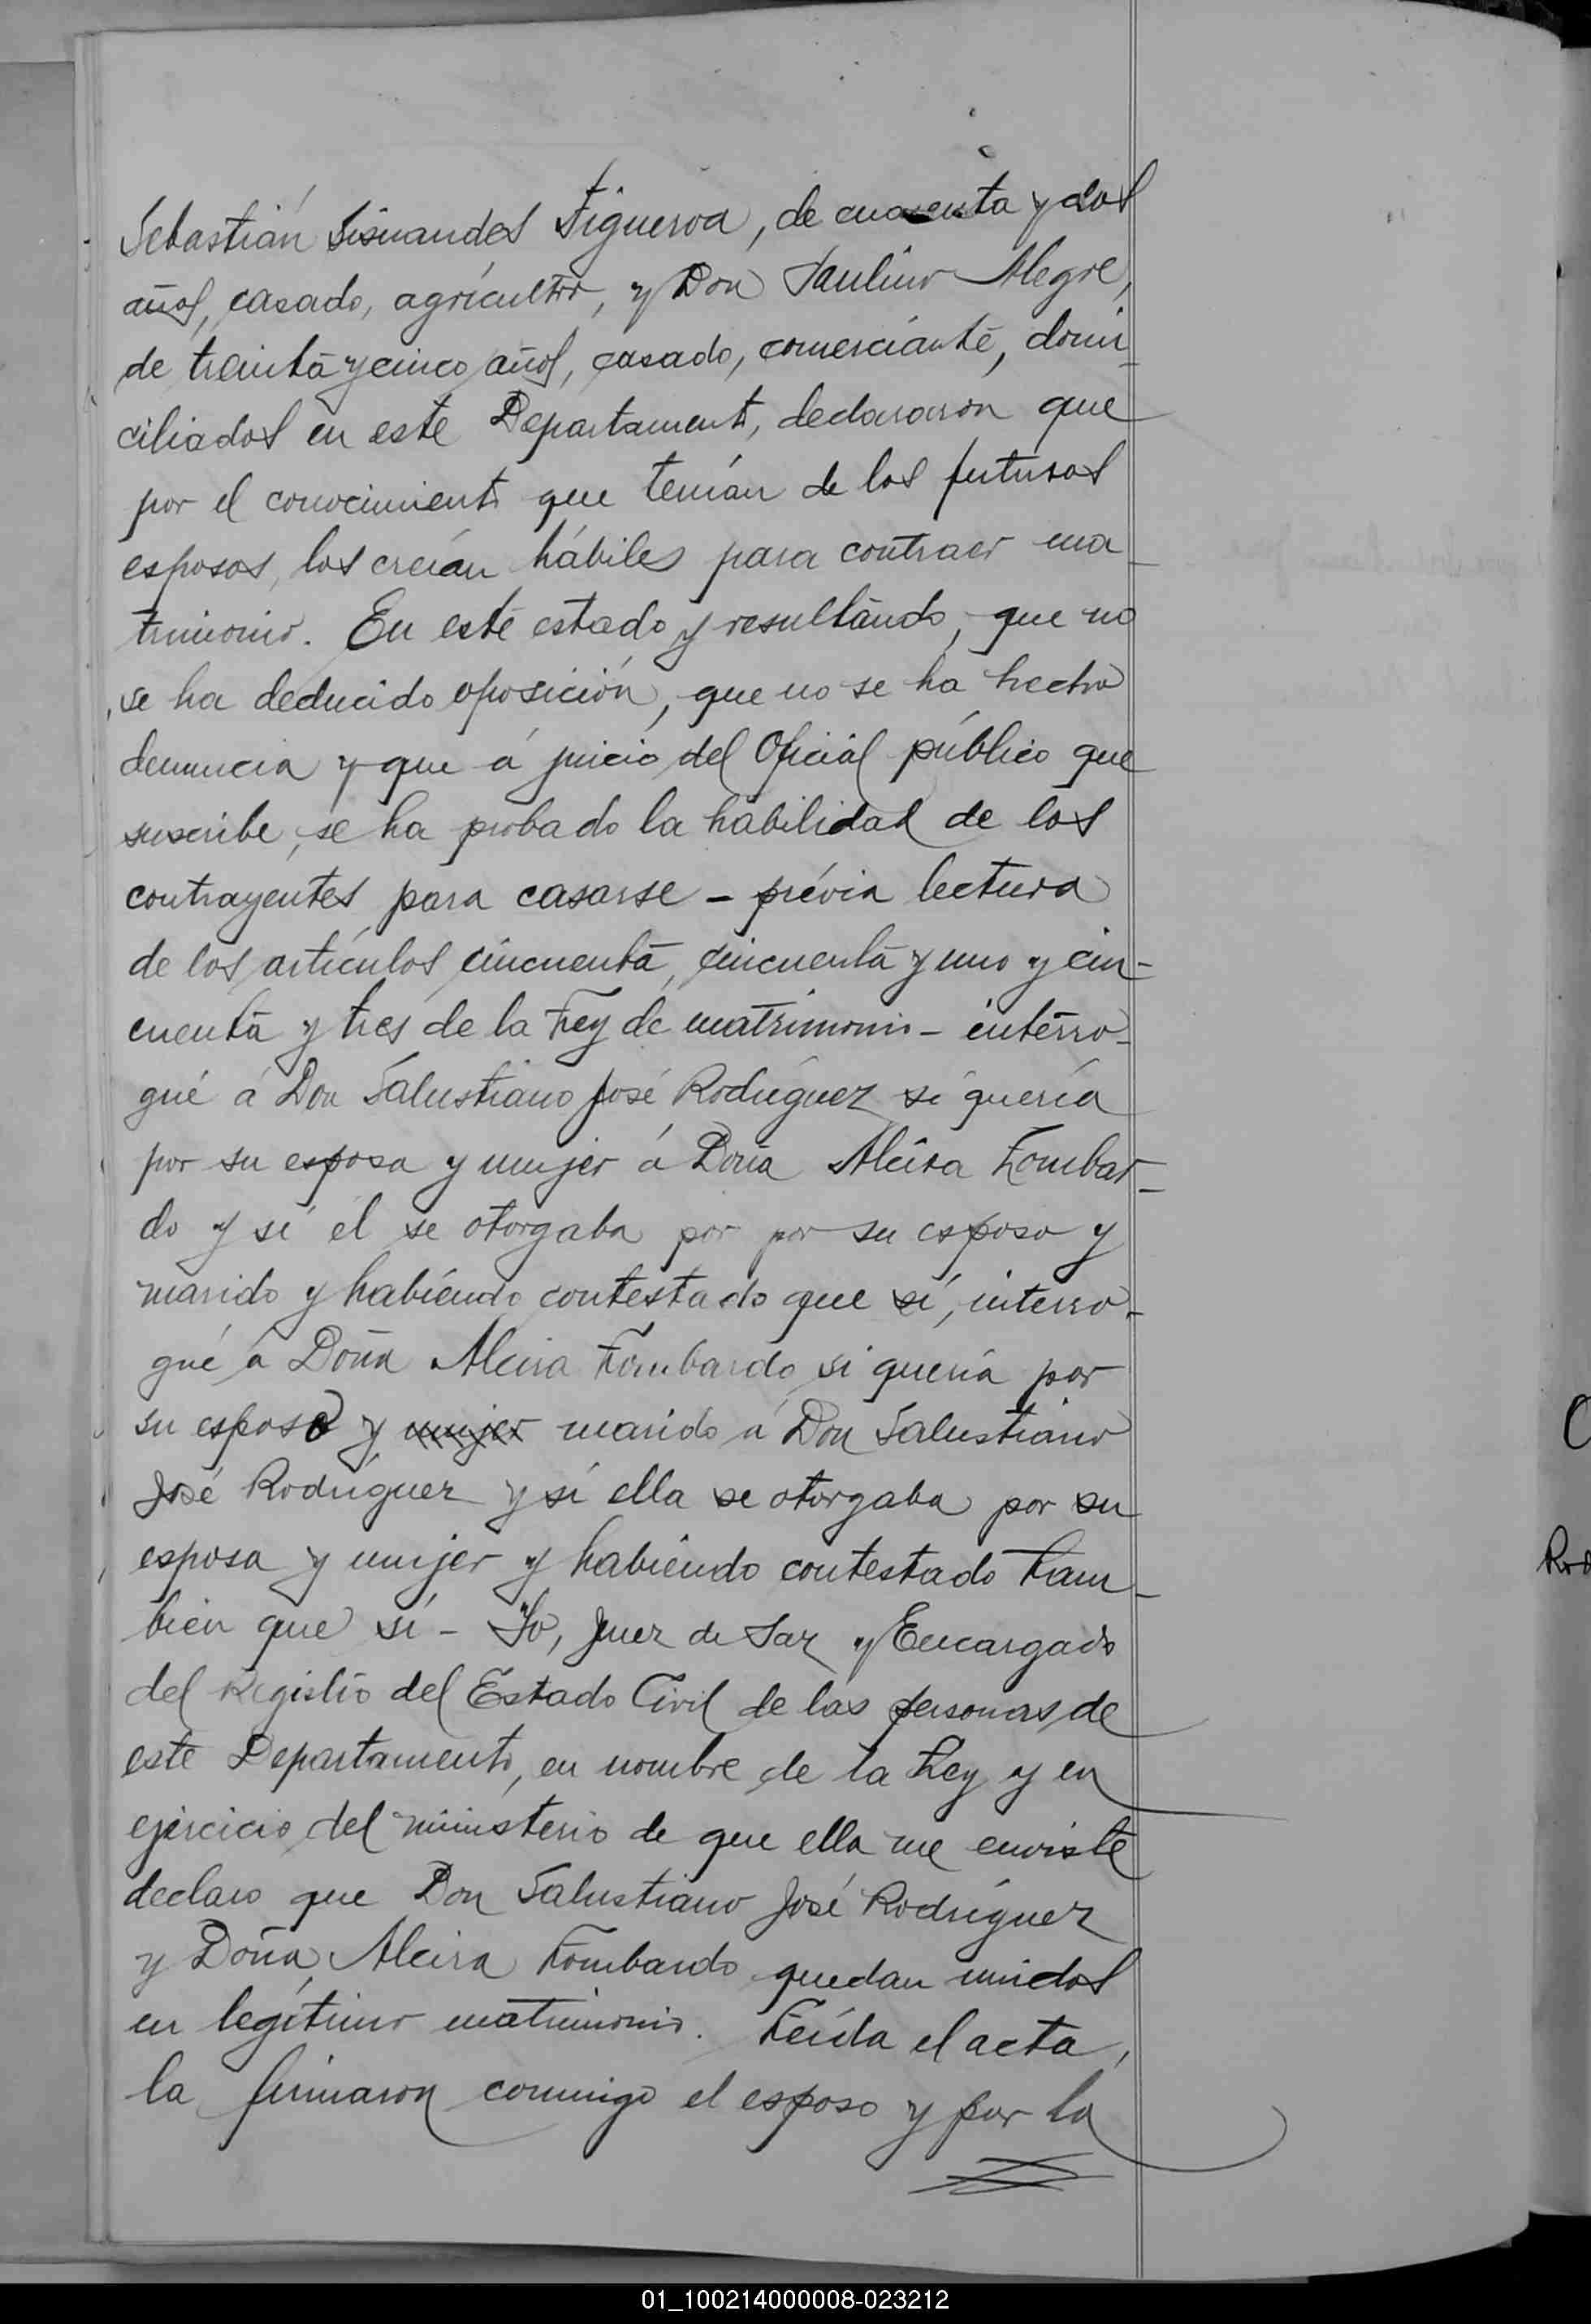 Sebastián Sisnandes Figueroa, de cuarenta y dos
años, casado, agricultor, y Don Paulino Alegre,
de treinta y cinco años, casado, comerciante, domi-
ciliados en este Departamento, declararon que
por el conocimiento que tenían de los futuros
esposos, los creían hábiles para contraer ma-
trimonio. En este estado y resultando, que no
se ha deducido oposición, que no se ha hecho
denuncia y que á juicio del Oficial público que
suscribe, se ha probado la habilidad de los
contrayentes para casarse - prévia lectura
de los artículos cincuenta, cincuenta y uno y cin-
cuenta y tres de la Ley de matrimonio - interro-
gué á Don Salustiano José Rodríguez si quería
por su esposa y mujer á Doña Alcira Lombar-
do y si él se otorgaba por por su esposo y
marido y habiendo contestado que sí, interro-
gué á Doña Alcira Lombardo si quería por
su esposo y mujer marido á Don Salustiano
José Rodríguez y si ella se otorgaba por su
esposa y mujer y habiendo contestado tam-
bién que sí - Yo, Juez de Paz y Encargado
del Registro del Estado Civil de las personas de
este Departamento, en nombre de la Ley y en
ejercicio del ministerio de que ella me enviste
declaro que Don Salustiano José Rodríguez
y Doña Alcira Lombardo quedan unidos
en legítimo matrimonio. Leída el acta,
la firmaron conmigo el esposo y por la
01_100214000008-023212